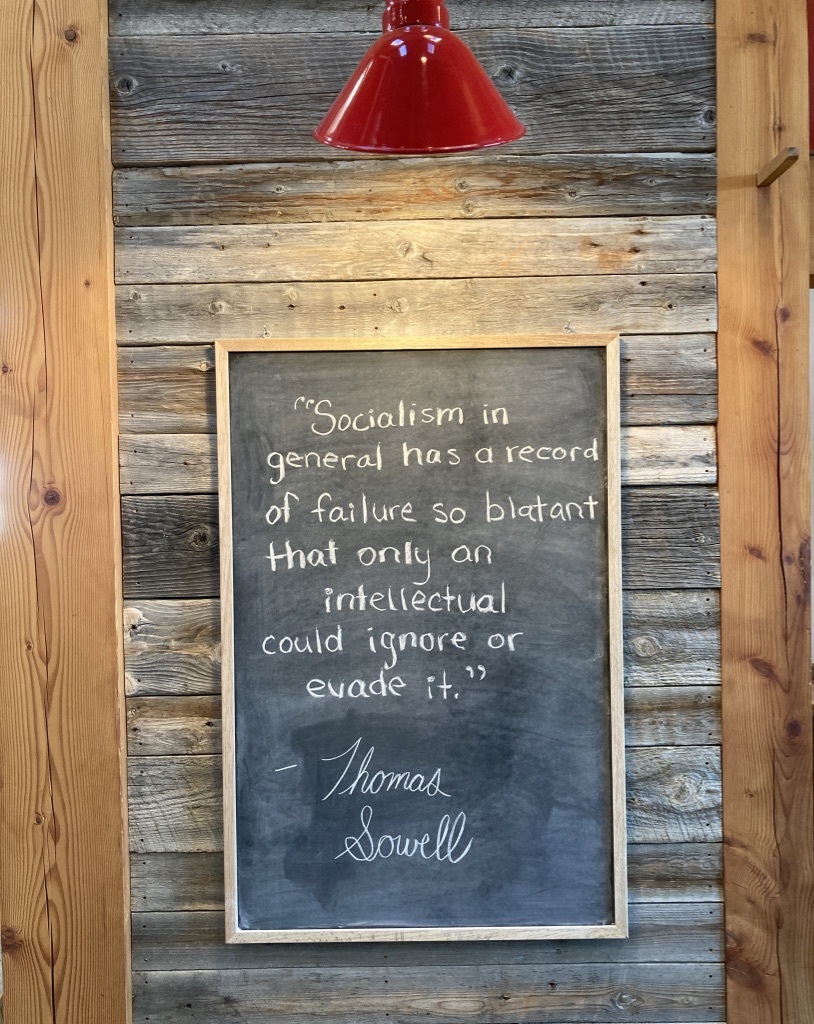 "Socialism in
general has a record
of failure so blatant
that only an
intellectual
could ignore or
evade it."
- Thomas
Sowell